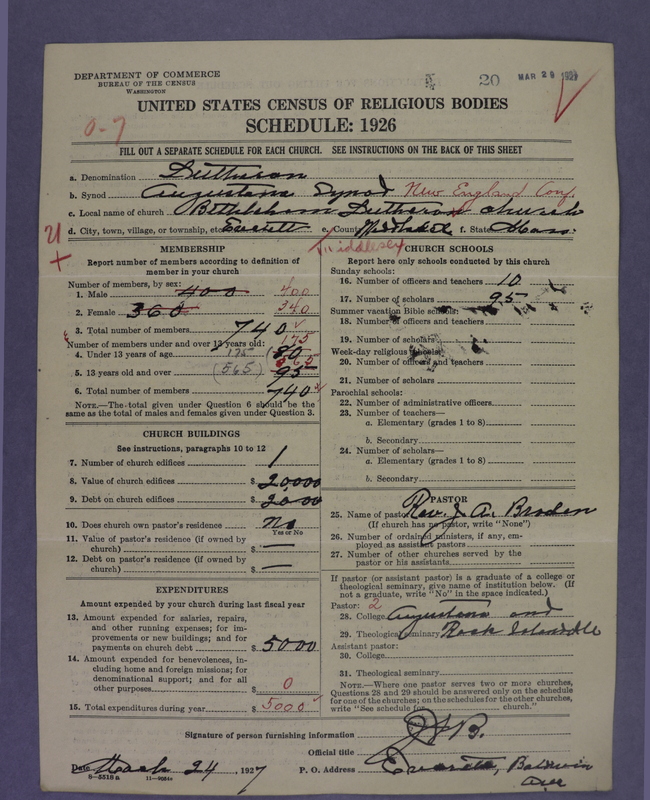 DEPARTMENT OF COMMERCE
BUREAU OF THE CENSUS
WASHINGTON
20 MAR 29 1927
UNITED STATES CENSUS OF RELIGIOUS BODIES
SCHEDULE: 1926
0-7
FILL OUT A SEPARATE SCHEDULE FOR EACH CHURCH. SEE INSTRUCTIONS ON THE BACK OF THIS SHEET
a. Denomination Lutheran
b. Synod Augustana Synod New England Conf.
c. Local name of church Bethlehem Lutheran church
d. City, town, village, or township, etc. Everett e. County Middlesex f. State Mass.
Middlesex
MEMBERSHIP
Report number of members according to definition of
member in your church
Number of members, by sex:
1. Male 400 400
2. Female 360 340
3. Total number of members 740
Number of members under and over 13 years old: 175
4. Under 13 years of age 175 (80
5. 13 years old and over (565) 95 565
6. Total number of members 740
NOTE.—The total given under Question 6 should be the
same as the total of males and females given under Question 3.
CHURCH BUILDINGS
See instructions, paragraphs 10 to 12
7. Number of church edifices 1
8. Value of church edifices $ 20,000
9. Debt on church edifices $ 2000
10. Does church own pastor's residence No
Yes or No
11. Value of pastor's residence (if owned by
church) $ —
12. Debt on pastor's residence (if owned by
church) $ —
EXPENDITURES
Amount expended by your church during last fiscal year
13. Amount expended for salaries, repairs,
and other running expenses; for im-
provements or new buildings; and for
payments on church debt $ 5000
14. Amount expended for benevolences, in-
cluding home and foreign missions; for
denominational support; and for all
other purposes $ 0
15. Total expenditures during year $ 5000
CHURCH SCHOOLS
Report here only schools conducted by this church
Sunday schools:
16. Number of officers and teachers 10
17. Number of scholars 95
Summer vacation Bible schools:
18. Number of officers and teachers
19. Number of scholars
Week-day religious schools:
20. Number of officers and teachers
21. Number of scholars
Parochial schools:
22. Number of administrative officers
23. Number of teachers—
a. Elementary (grades 1 to 8)
b. Secondary
24. Number of scholars—
a. Elementary (grades 1 to 8)
b. Secondary
PASTOR
25. Name of pastor Rev. J. A. Broden
(If church has no pastor, write "None")
26. Number of ordained ministers, if any, em-
ployed as assistant pastors
27. Number of other churches served by the
pastor or his assistants
If pastor (or assistant pastor) is a graduate of a college or
theological seminary, give name of institution below. (If
not a graduate, write "No" in the space indicated.)
Pastor: 2
28. College Augustana and
29. Theological seminary Rock Island Ill
Assistant pastor:
30. College
31. Theological seminary
NOTE.—Where one pastor serves two or more churches,
Questions 28 and 29 should be answered only on the schedule
for one of the churches; on the schedules for the other churches,
write "See schedule for church."
Signature of person furnishing information J A B.
Official title
Date March 24, 1927 P. O. Address Everett, Baldwin
Ave
8—5518 a